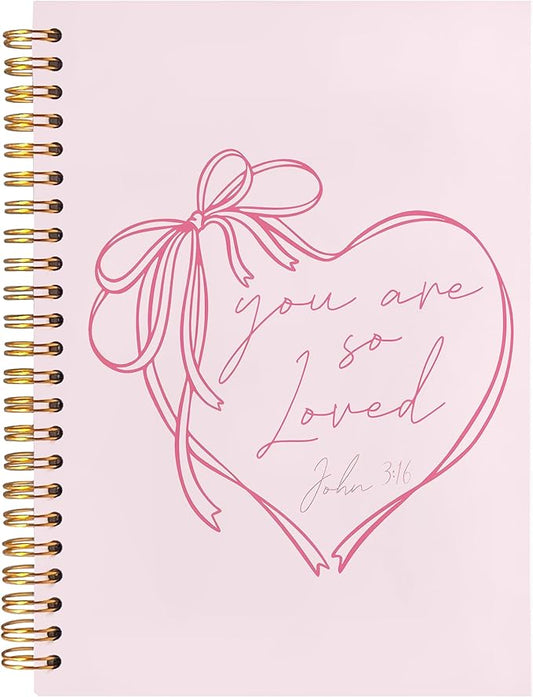 you are
so
Loved
John 3:16